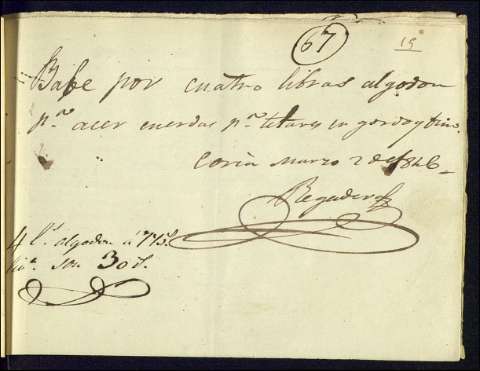 67
19
Bale por cuatro libras algodon
p.ª acer cuerdas p.ª telares en gordo y fino.
Coria Marzo 2 de 1846
Regadera
4 l.s algodon á
son 30